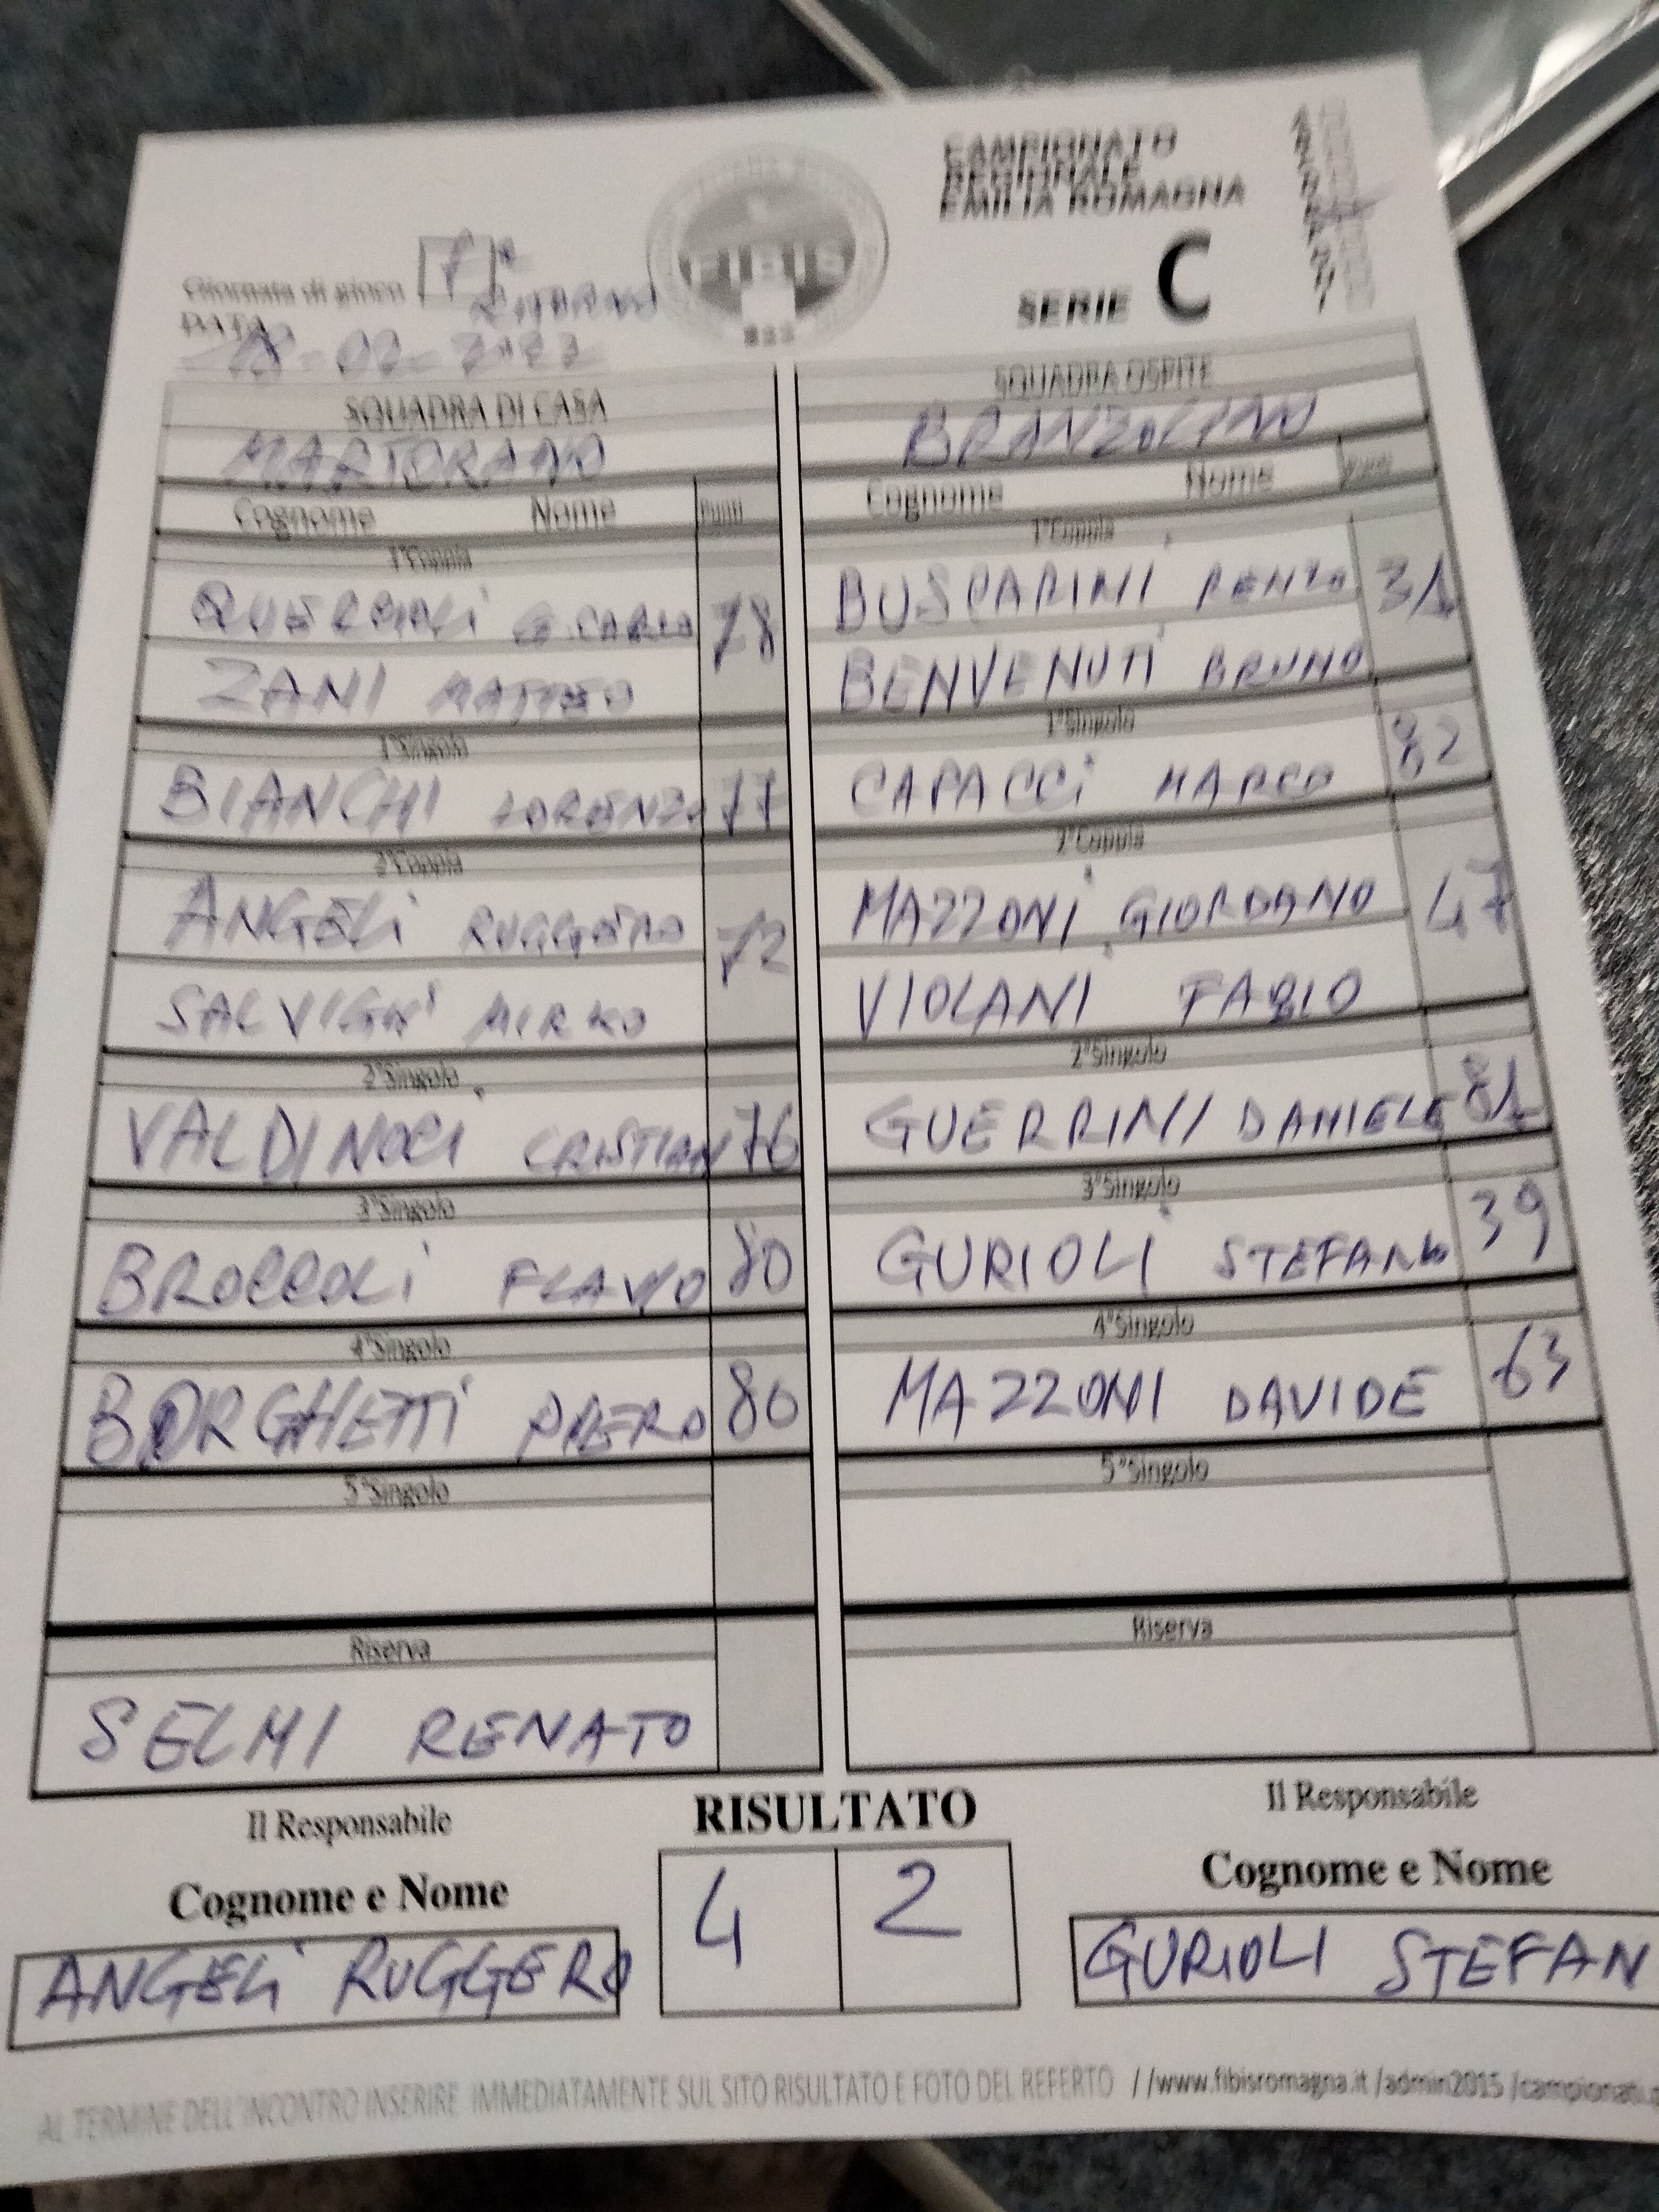 CAMPIONATO
REGIONALE
EMILIA ROMAGNA
SERIE C
FIBIS
Giornata di gioco
RITORNO
DATA
SQUADRA DI CASA
MARTORANO
Cognome Nome Punti
1°Coppia
G.CARLO 78
ZANI MATTEO
1°Singolo
BIANCHI LORENZO 77
2°Coppia
ANGELI RUGGERO 72
SALVIGNI MIRKO
2°Singolo
VALDINOCI CRISTIAN 76
3°Singolo
BROCCOLI FLAVIO 80
4°Singolo
BORGHETTI PIERO 80
5°Singolo
Riserva
SELMI RENATO
SQUADRA OSPITE
BRANZOLINO
Cognome Nome Punti
1°Coppia
BUSCARINI RENZO 31
BENVENUTI BRUNO
1°Singolo
CAPACCI MARCO 82
2°Coppia
MAZZONI GIORDANO 47
VIOLANI FABIO
2°Singolo
GUERRINI DANIELE 81
3°Singolo
GURIOLI STEFANO 39
4°Singolo
MAZZONI DAVIDE 63
5°Singolo
Riserva
Il Responsabile
Cognome e Nome
ANGELI RUGGERO
RISULTATO
4 2
Il Responsabile
Cognome e Nome
GURIOLI STEFAN
AL TERMINE DELL'INCONTRO INSERIRE IMMEDIATAMENTE SUL SITO RISULTATO E FOTO DEL REFERTO //www.fibisromagna.it /admin2015 /campionati.